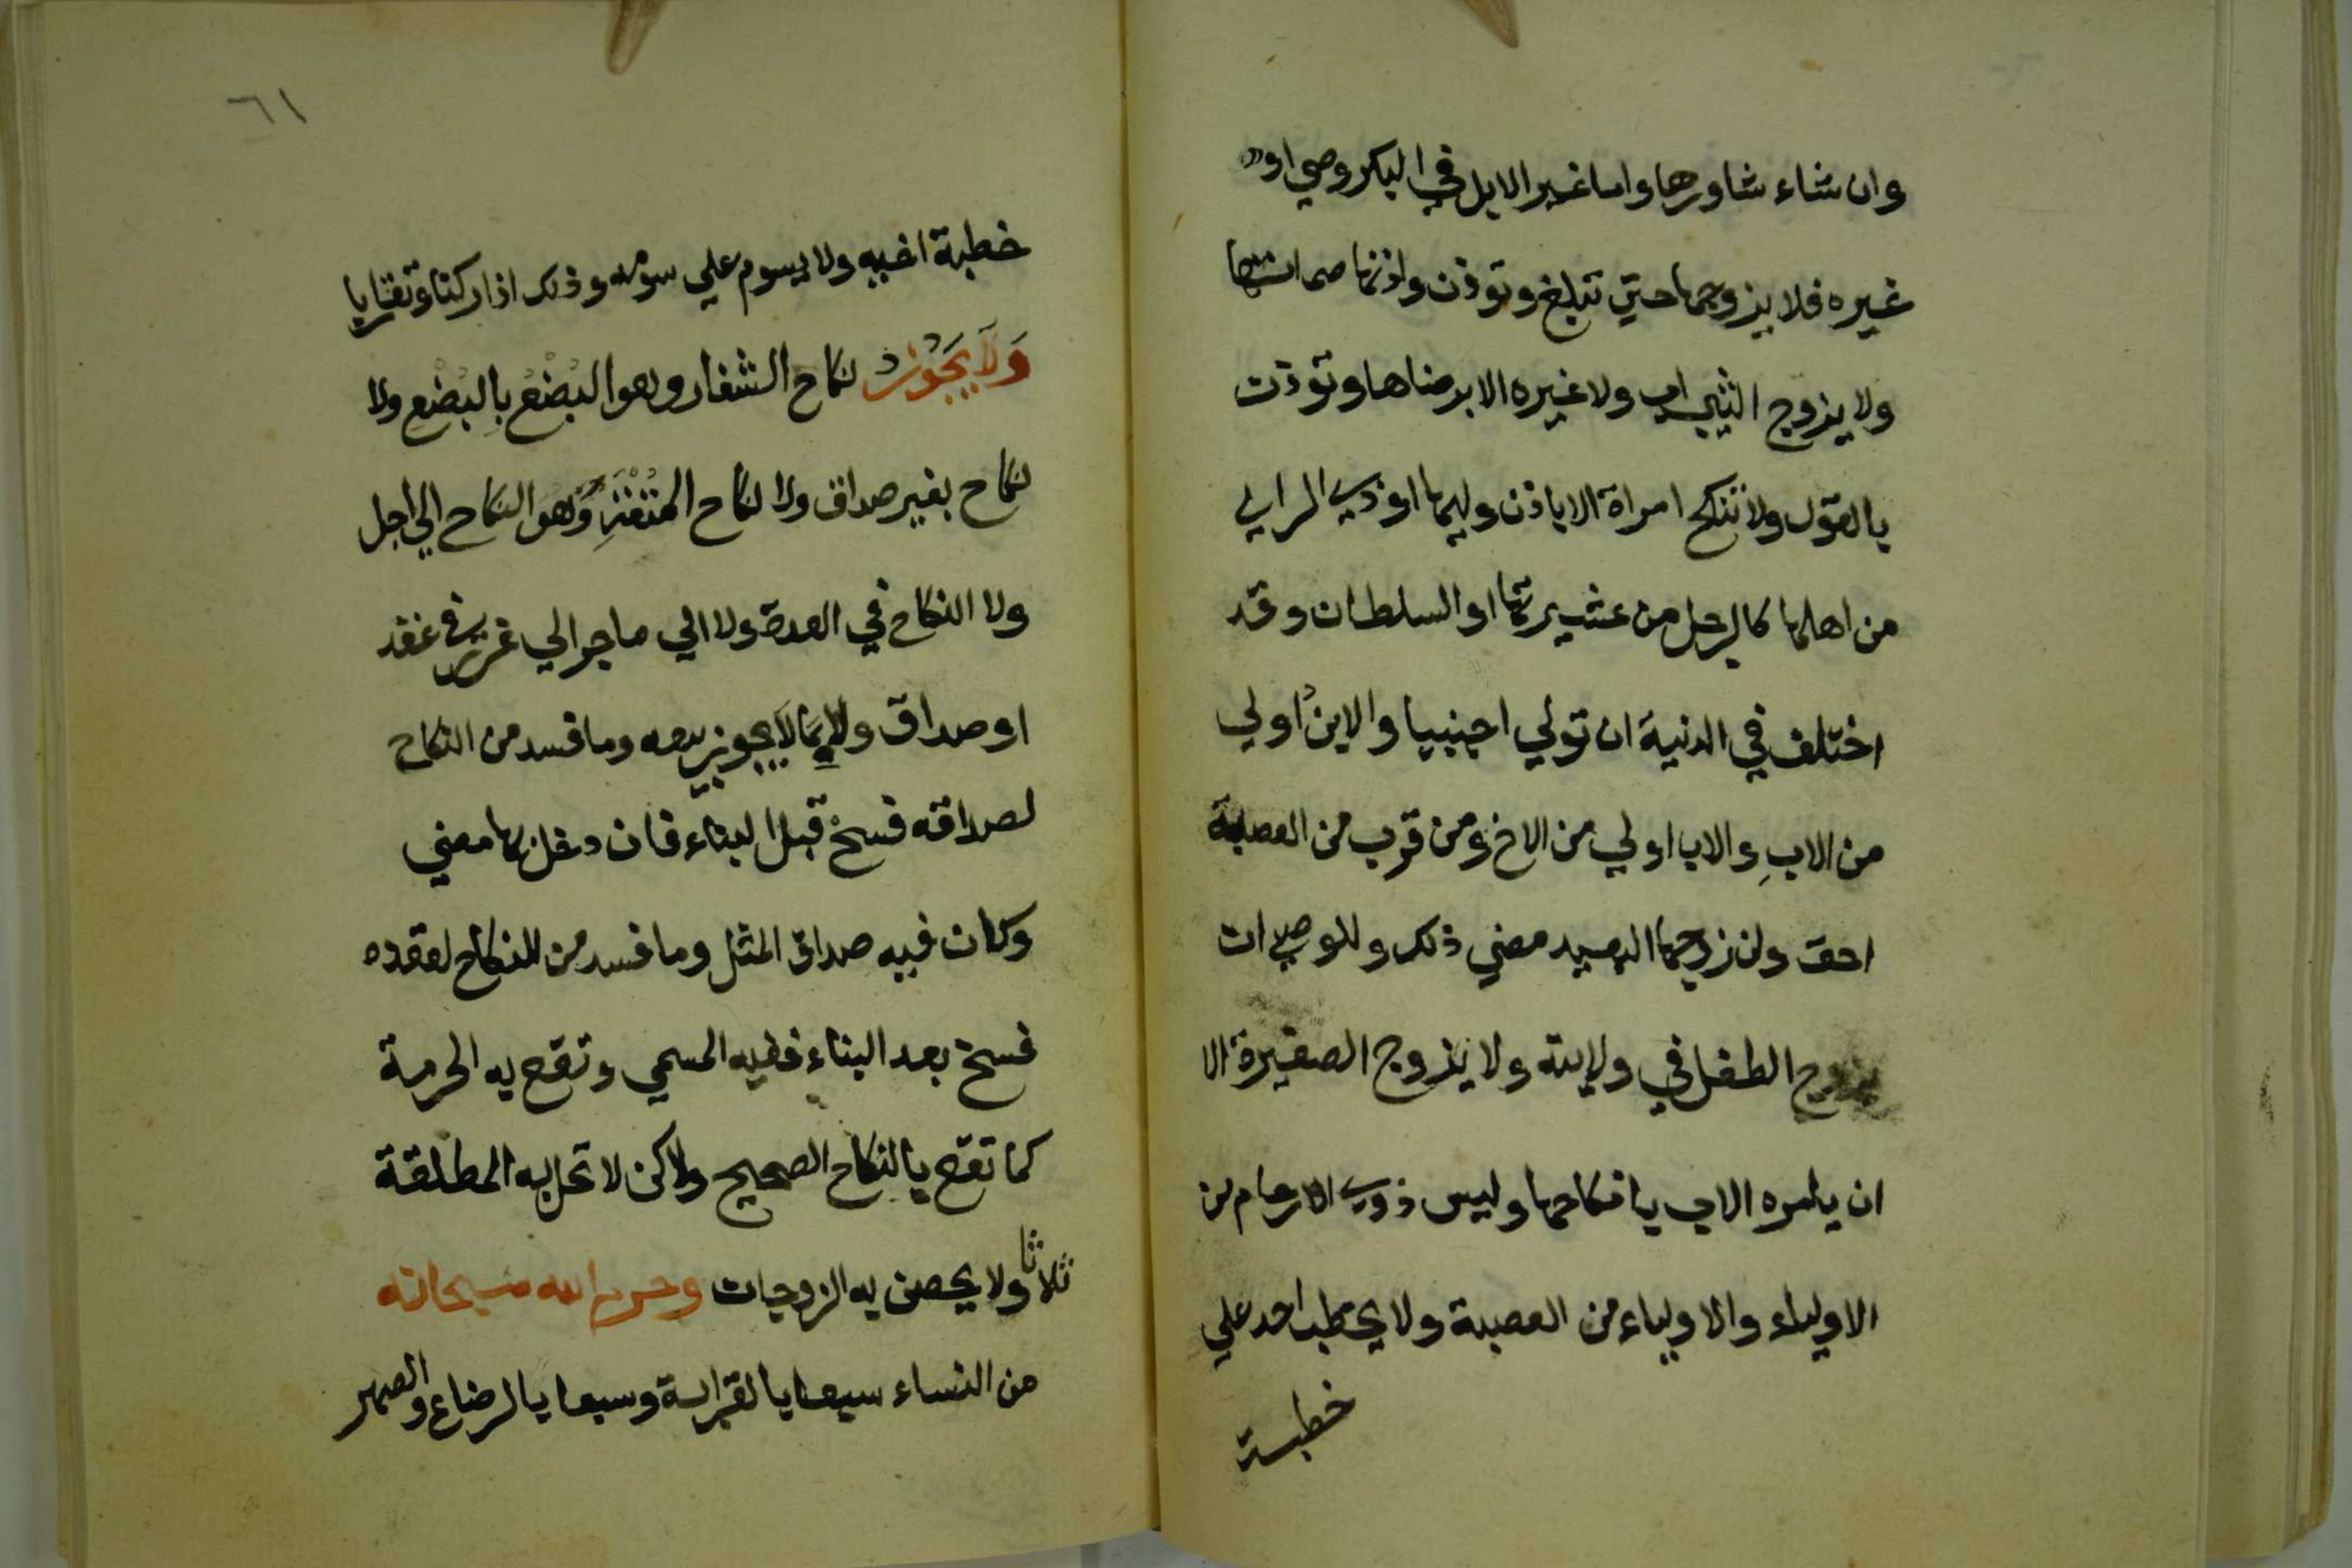 وان شاء شاورها واما غير الاب في البكر وصي او
غيره فلا يزوجها حتي تبلغ وتوذن واذنها صماتها
ولا يزوج الثيب اب ولا غيره الا برضاها وتوذن
بالقول ولا تنكح امراة الا باذن وليها او ذي الراي
من اهلها كالرجل من عشيرتها او السلطان وقد
اختلف في الدنية ان تولي اجنبيا والابن اولي
من الاب والاب اولي من الاخ ومن قرب من العصبة
احق وان زوجها البعيد مضي ذلك وللوصي ان
يزوج الطفل في ولايته ولا يزوج الصغيرة الا
ان يامره الاب بانكاحها وليس ذوي الارحام من
الاولياء والاولياء من العصبة ولا يخطب احد علي
خطبة
٦١
خطبة اخيه ولا يسوم علي سومه وذلك اذا ركنا وتقاربا
وَلَا يَجُوزُ نكاح الشغار وهو البُضْعُ بِالبُضْعِ ولا
نكاح بغير صداق ولا نكاح المتعة وهو النكاح الي اجل
ولا النكاح في العدة ولا الي ما جر الي غرر في عقد
او صداق ولا بما لا يجوز بيعه وما فسد من النكاح
لصداقه فسخ قبل البناء فان دخل بها مضي
وكان فيه صداق المثل وما فسد من النكاح لعقده
فسخ بعد البناء ففيه المسمي وتقع به الحرمة
كما تقع بالنكاح الصحيح ولاكن لا تحل به المطلقة
ثلاثا ولا يحصن به الزوجات وحرم الله سبحانه
من النساء سبعا بالقرابة وسبعا بالرضاع والصهر